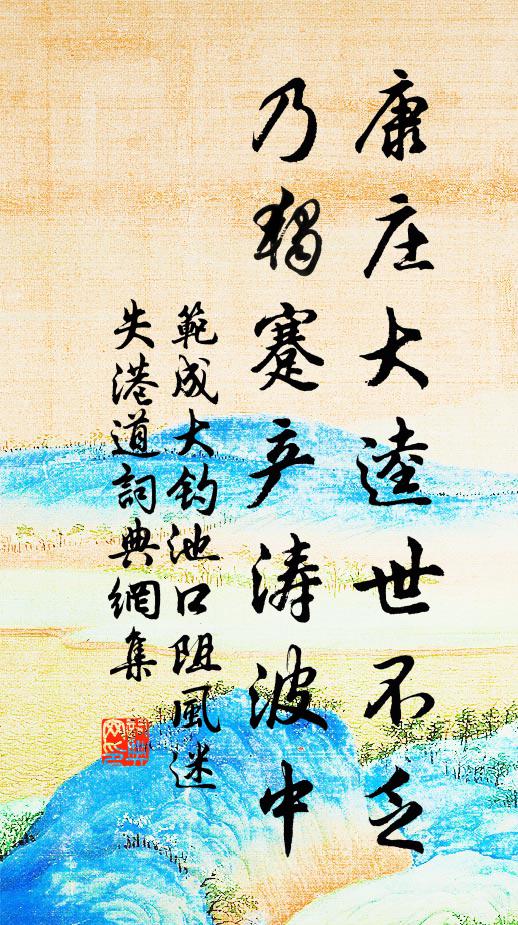 康庄大逵世不乏
乃独蹇产涛波中
範成大钓池口阻風迷
失港道詞典網集